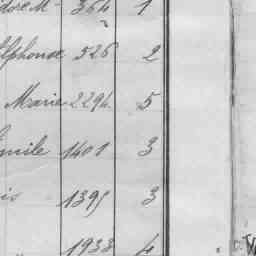 364 1
Alphonse 526 2
Marie 2294 5
Emile 1401 3
1395 3
1933 4